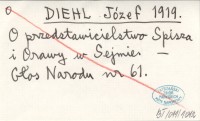 DIEHL Józef 1919.
O przedstawicielstwo Spisza
i Orawy w Sejmie –
Głos Narodu nr 61.